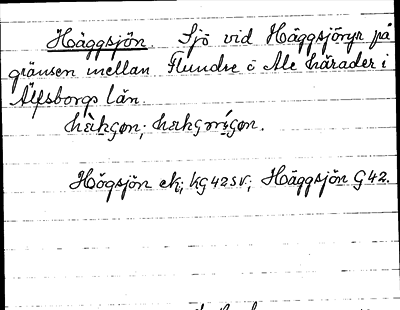 Häggsjön Sjö vid Häggsjöryr på
gränsen mellan Flundre o Ale härader i
Älfsborgs län.
Högsjön ek; KG 42 SV; Häggsjön G 42.